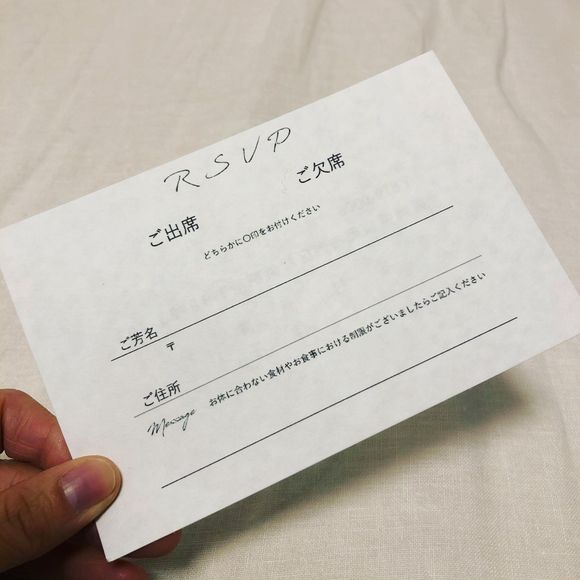 RSVP
ご出席 ご欠席
どちらかに〇印をお付けください
ご芳名
〒
ご住所
Message お体に合わない食材やお食事における制限がございましたらご記入ください